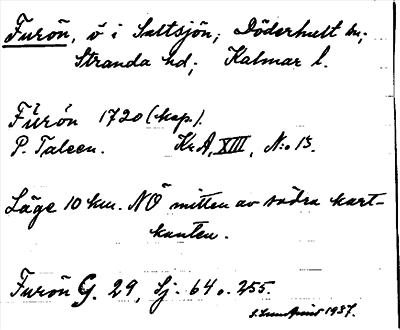 Furön, ö i Saltsjön; Döderhult sn;
Stranda hd; Kalmar l.
Furön 1720 (kop.).
P. Taleen. KrA, XIII, N:o 13.
Läge 10 km. NÖ mitten av södra kart-
kanten.
Furön G. 29, Sj. 64 o. 255.
1937.